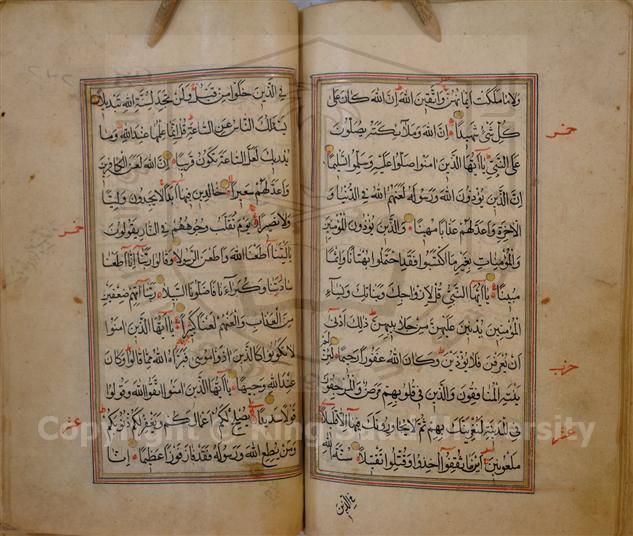 ولا ما ملكت ايمانهن واتقين الله ان الله كان على
كل شئ شهيدا ان الله وملائكته يصلون
على النبي يا ايها الذين امنوا صلوا عليه وسلموا تسليما
ان الذين يؤذون الله ورسوله لعنهم الله في الدنيا و
الاخرة واعد لهم عذابا مهينا والذين يؤذون المؤمنين
والمؤمنات بغير ما اكتسبوا فقد احتملوا بهتانا واثما
مبينا يا ايها النبي قل لازواجك وبناتك ونساء
المؤمنين يدنين عليهن من جلابيبهن ذلك ادنى
ان يعرفن فلا يؤذين وكان الله غفورا رحيما لئن لم
ينته المنافقون والذين في قلوبهم مرض والمرجفون
في المدينة لنغرينك بهم ثم لا يجاورونك فيها الا قليلا
ملعونين اينما ثقفوا اخذوا وقتلوا تقتيلا سنة الله
في الذين
خمر
حزب
عشر
في الذين خلوا من قبل ولن تجد لسنة الله تبديلا
يسئلك الناس عن الساعة قل انما علمها عند الله وما
يدريك لعل الساعة تكون قريبا ان الله لعن الكافرين
واعد لهم سعيرا خالدين فيها ابدا لا يجدون وليا
ولا نصيرا يوم تقلب وجوههم في النار يقولون
يا ليتنا اطعنا الله واطعنا الرسولا وقالوا ربنا انا اطعنا
سادتنا وكبراءنا فاضلونا السبيلا ربنا اتهم ضعفين
من العذاب والعنهم لعنا كبيرا يا ايها الذين امنوا
لا تكونوا كالذين اذوا موسى فبراه الله مما قالوا وكان
عند الله وجيها يا ايها الذين امنوا اتقوا الله وقولوا
قولا سديدا يصلح لكم اعمالكم ويغفر لكم ذنوبكم
ومن يطع الله ورسوله فقد فاز فوزا عظيما انا
خمر
عشر
Copyright © King Saud University